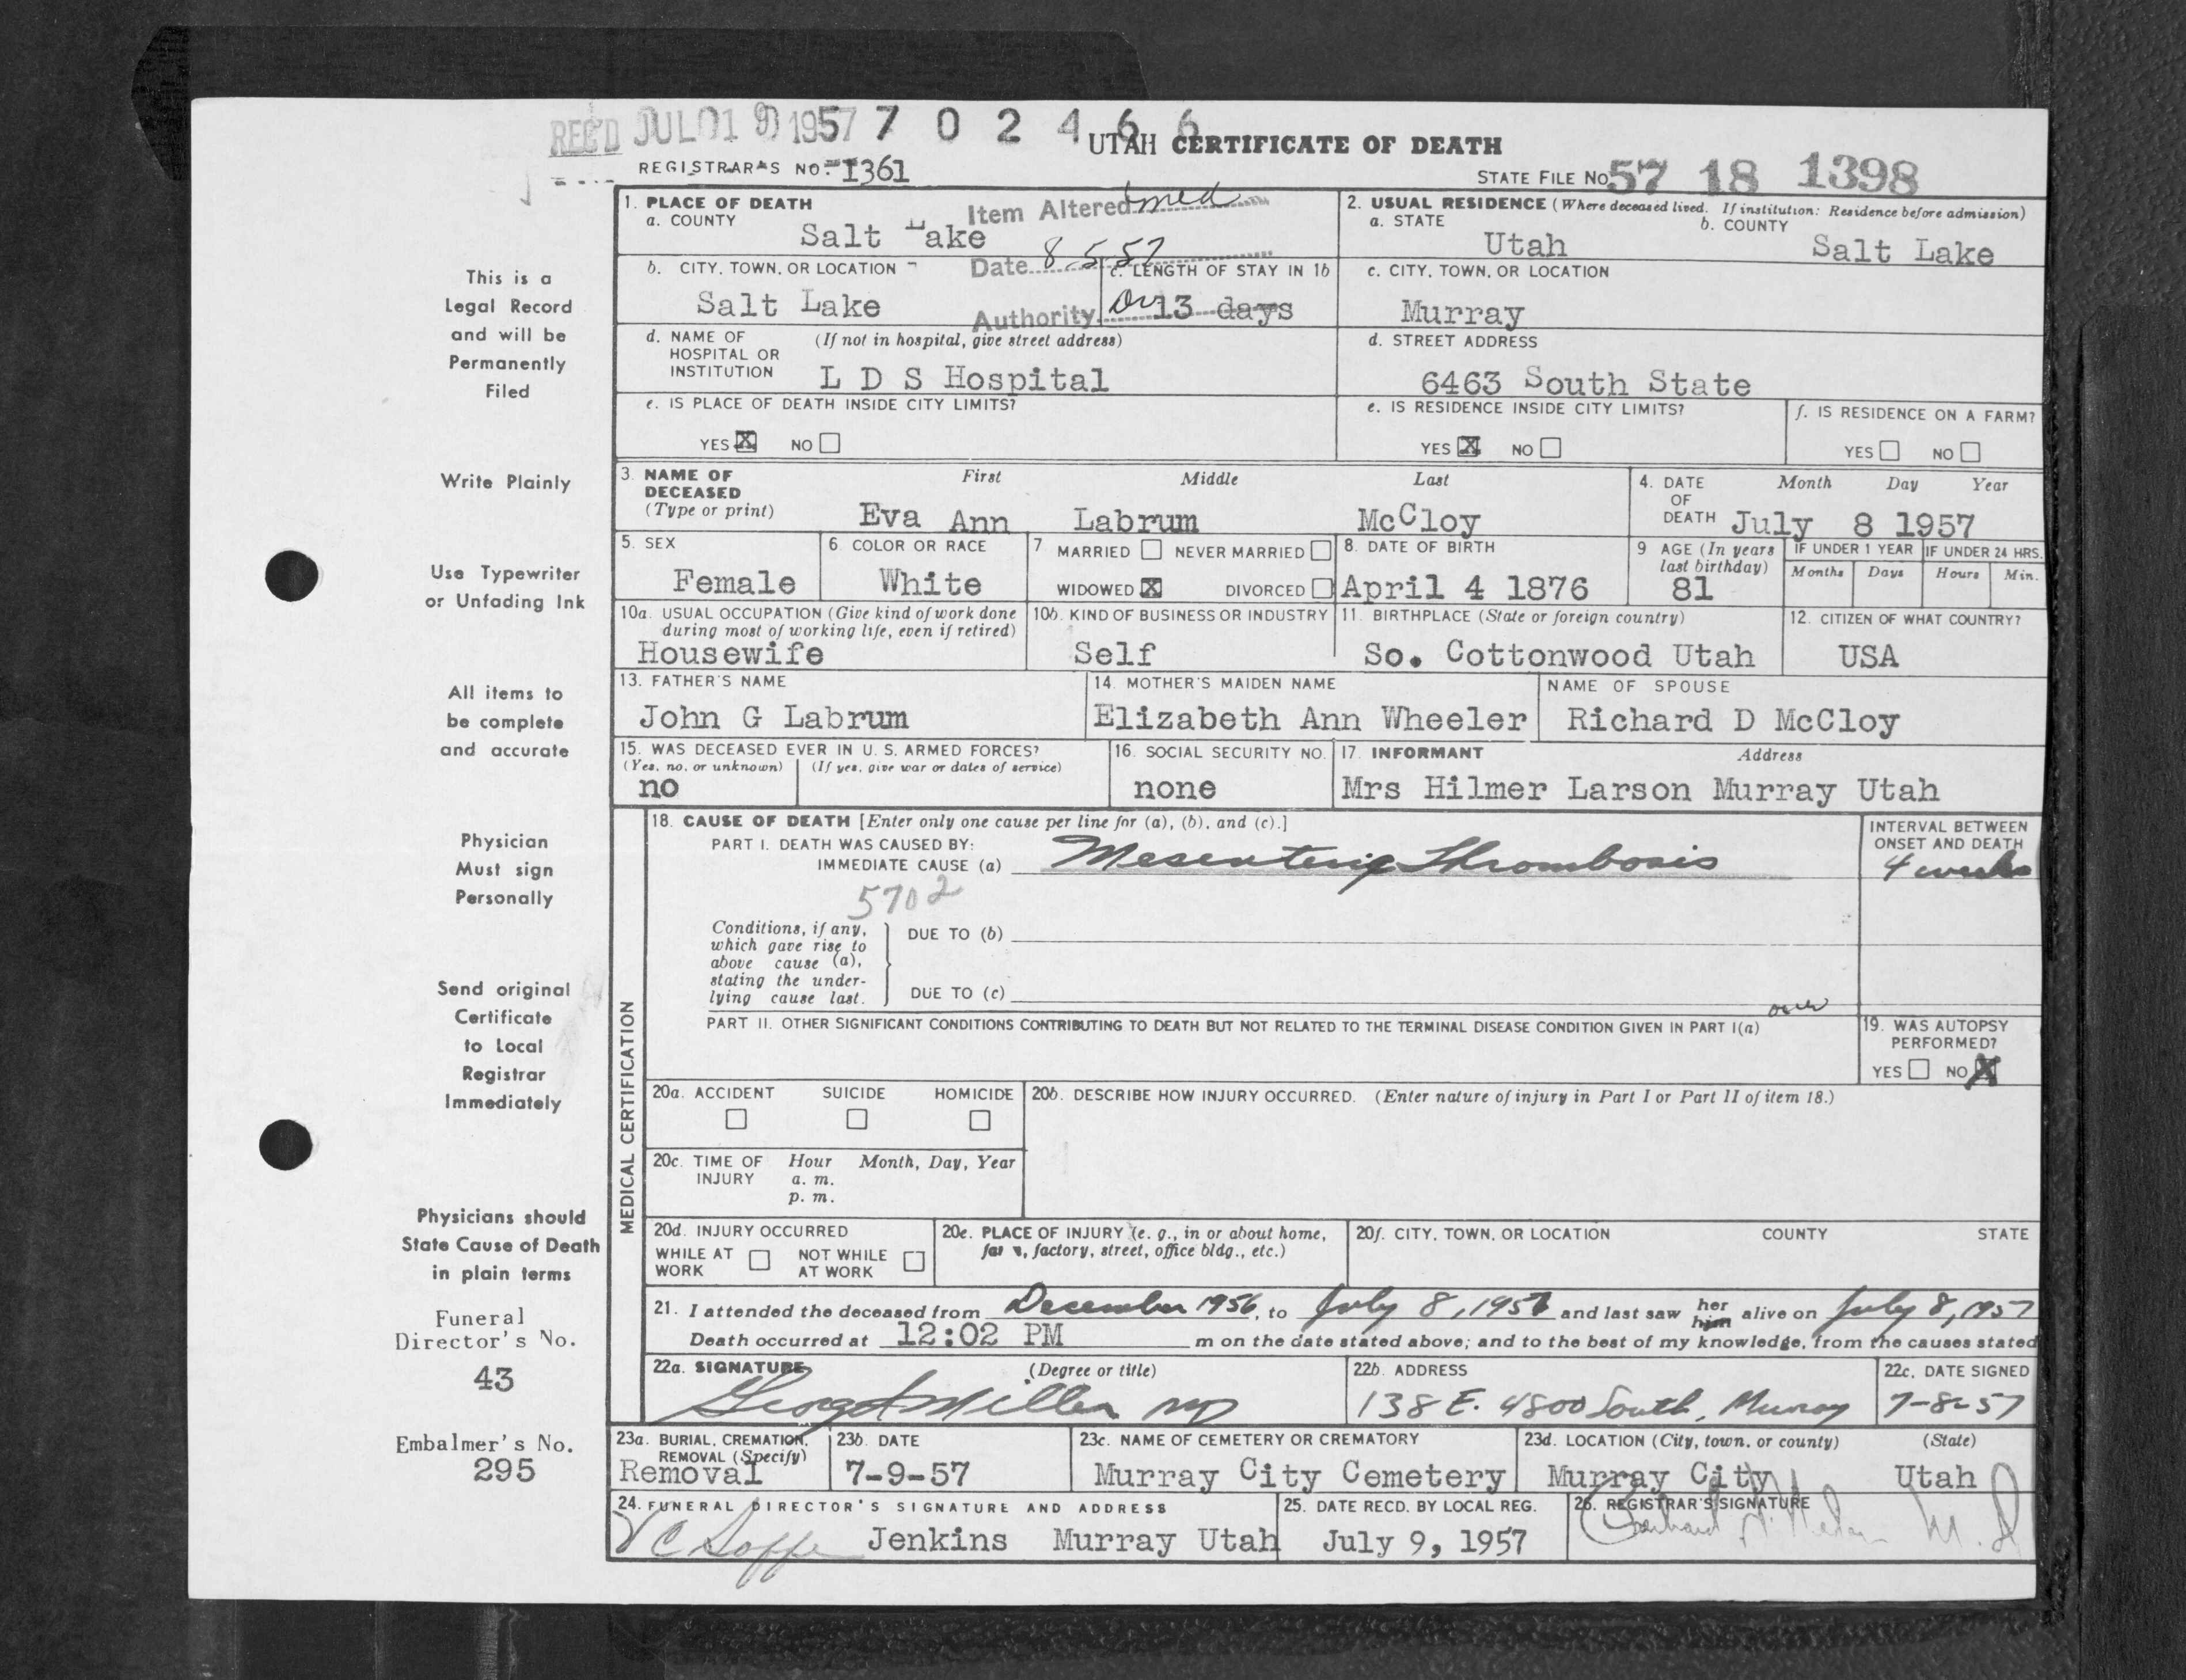 REC'D JUL 01 9 1957 7 0 2 4 6 6
UTAH CERTIFICATE OF DEATH
REGISTRAR'S NO. 1361
STATE FILE NO. 57 18 1398
1. PLACE OF DEATH
a. COUNTY
Salt Lake
Item Altered med
Date 8-5-57
Authority Dr
2. USUAL RESIDENCE (Where deceased lived. If institution: Residence before admission)
a. STATE
Utah
b. COUNTY
Salt Lake
b. CITY, TOWN, OR LOCATION
Salt Lake
c. LENGTH OF STAY IN 1b
13 days
c. CITY, TOWN, OR LOCATION
Murray
d. NAME OF HOSPITAL OR INSTITUTION
(If not in hospital, give street address)
L D S Hospital
d. STREET ADDRESS
6463 South State
e. IS PLACE OF DEATH INSIDE CITY LIMITS?
YES X NO
e. IS RESIDENCE INSIDE CITY LIMITS?
YES X NO
f. IS RESIDENCE ON A FARM?
YES NO
3. NAME OF DECEASED (Type or print)
First Middle Last
Eva Ann Labrum McCloy
4. DATE OF DEATH
Month Day Year
July 8 1957
5. SEX
Female
6. COLOR OR RACE
White
7 MARRIED NEVER MARRIED
WIDOWED X DIVORCED
8. DATE OF BIRTH
April 4 1876
9 AGE (In years last birthday)
81
IF UNDER 1 YEAR
Months Days
IF UNDER 24 HRS.
Hours Min.
10a. USUAL OCCUPATION (Give kind of work done during most of working life, even if retired)
Housewife
10b. KIND OF BUSINESS OR INDUSTRY
Self
11. BIRTHPLACE (State or foreign country)
So. Cottonwood Utah
12. CITIZEN OF WHAT COUNTRY?
USA
13. FATHER'S NAME
John G Labrum
14. MOTHER'S MAIDEN NAME
Elizabeth Ann Wheeler
NAME OF SPOUSE
Richard D McCloy
15. WAS DECEASED EVER IN U. S. ARMED FORCES?
(Yes, no, or unknown) (If yes, give war or dates of service)
no
16. SOCIAL SECURITY NO.
none
17. INFORMANT Address
Mrs Hilmer Larson Murray Utah
MEDICAL CERTIFICATION
18. CAUSE OF DEATH [Enter only one cause per line for (a), (b), and (c).]
PART I. DEATH WAS CAUSED BY:
IMMEDIATE CAUSE (a) Mesenteric Thrombosis
5702
INTERVAL BETWEEN ONSET AND DEATH
4 weeks
Conditions, if any, which gave rise to above cause (a), stating the underlying cause last.
DUE TO (b)
DUE TO (c)
over
PART II. OTHER SIGNIFICANT CONDITIONS CONTRIBUTING TO DEATH BUT NOT RELATED TO THE TERMINAL DISEASE CONDITION GIVEN IN PART I(a)
19. WAS AUTOPSY PERFORMED?
YES NO X
20a. ACCIDENT SUICIDE HOMICIDE
20b. DESCRIBE HOW INJURY OCCURRED. (Enter nature of injury in Part I or Part II of item 18.)
20c. TIME OF INJURY
Hour Month, Day, Year
a. m.
p. m.
20d. INJURY OCCURRED
WHILE AT WORK NOT WHILE AT WORK
20e. PLACE OF INJURY (e. g., in or about home, farm, factory, street, office bldg., etc.)
20f. CITY, TOWN, OR LOCATION COUNTY STATE
21. I attended the deceased from December 1956, to July 8, 1957 and last saw her him alive on July 8, 1957
Death occurred at 12:02 PM m on the date stated above; and to the best of my knowledge, from the causes stated
22a. SIGNATURE (Degree or title)
George A Miller MD
22b. ADDRESS
138 E. 4800 South, Murray
22c. DATE SIGNED
7-8-57
23a. BURIAL, CREMATION, REMOVAL (Specify)
Removal
23b. DATE
7-9-57
23c. NAME OF CEMETERY OR CREMATORY
Murray City Cemetery
23d. LOCATION (City, town, or county) (State)
Murray City Utah
24. FUNERAL DIRECTOR'S SIGNATURE AND ADDRESS
Jenkins Murray Utah
25. DATE RECD. BY LOCAL REG.
July 9, 1957
26. REGISTRAR'S SIGNATURE
M.D
This is a
Legal Record
and will be
Permanently
Filed
Write Plainly
Use Typewriter
or Unfading Ink
All items to
be complete
and accurate
Physician
Must sign
Personally
Send original
Certificate
to Local
Registrar
Immediately
Physicians should
State Cause of Death
in plain terms
Funeral
Director's No.
43
Embalmer's No.
295